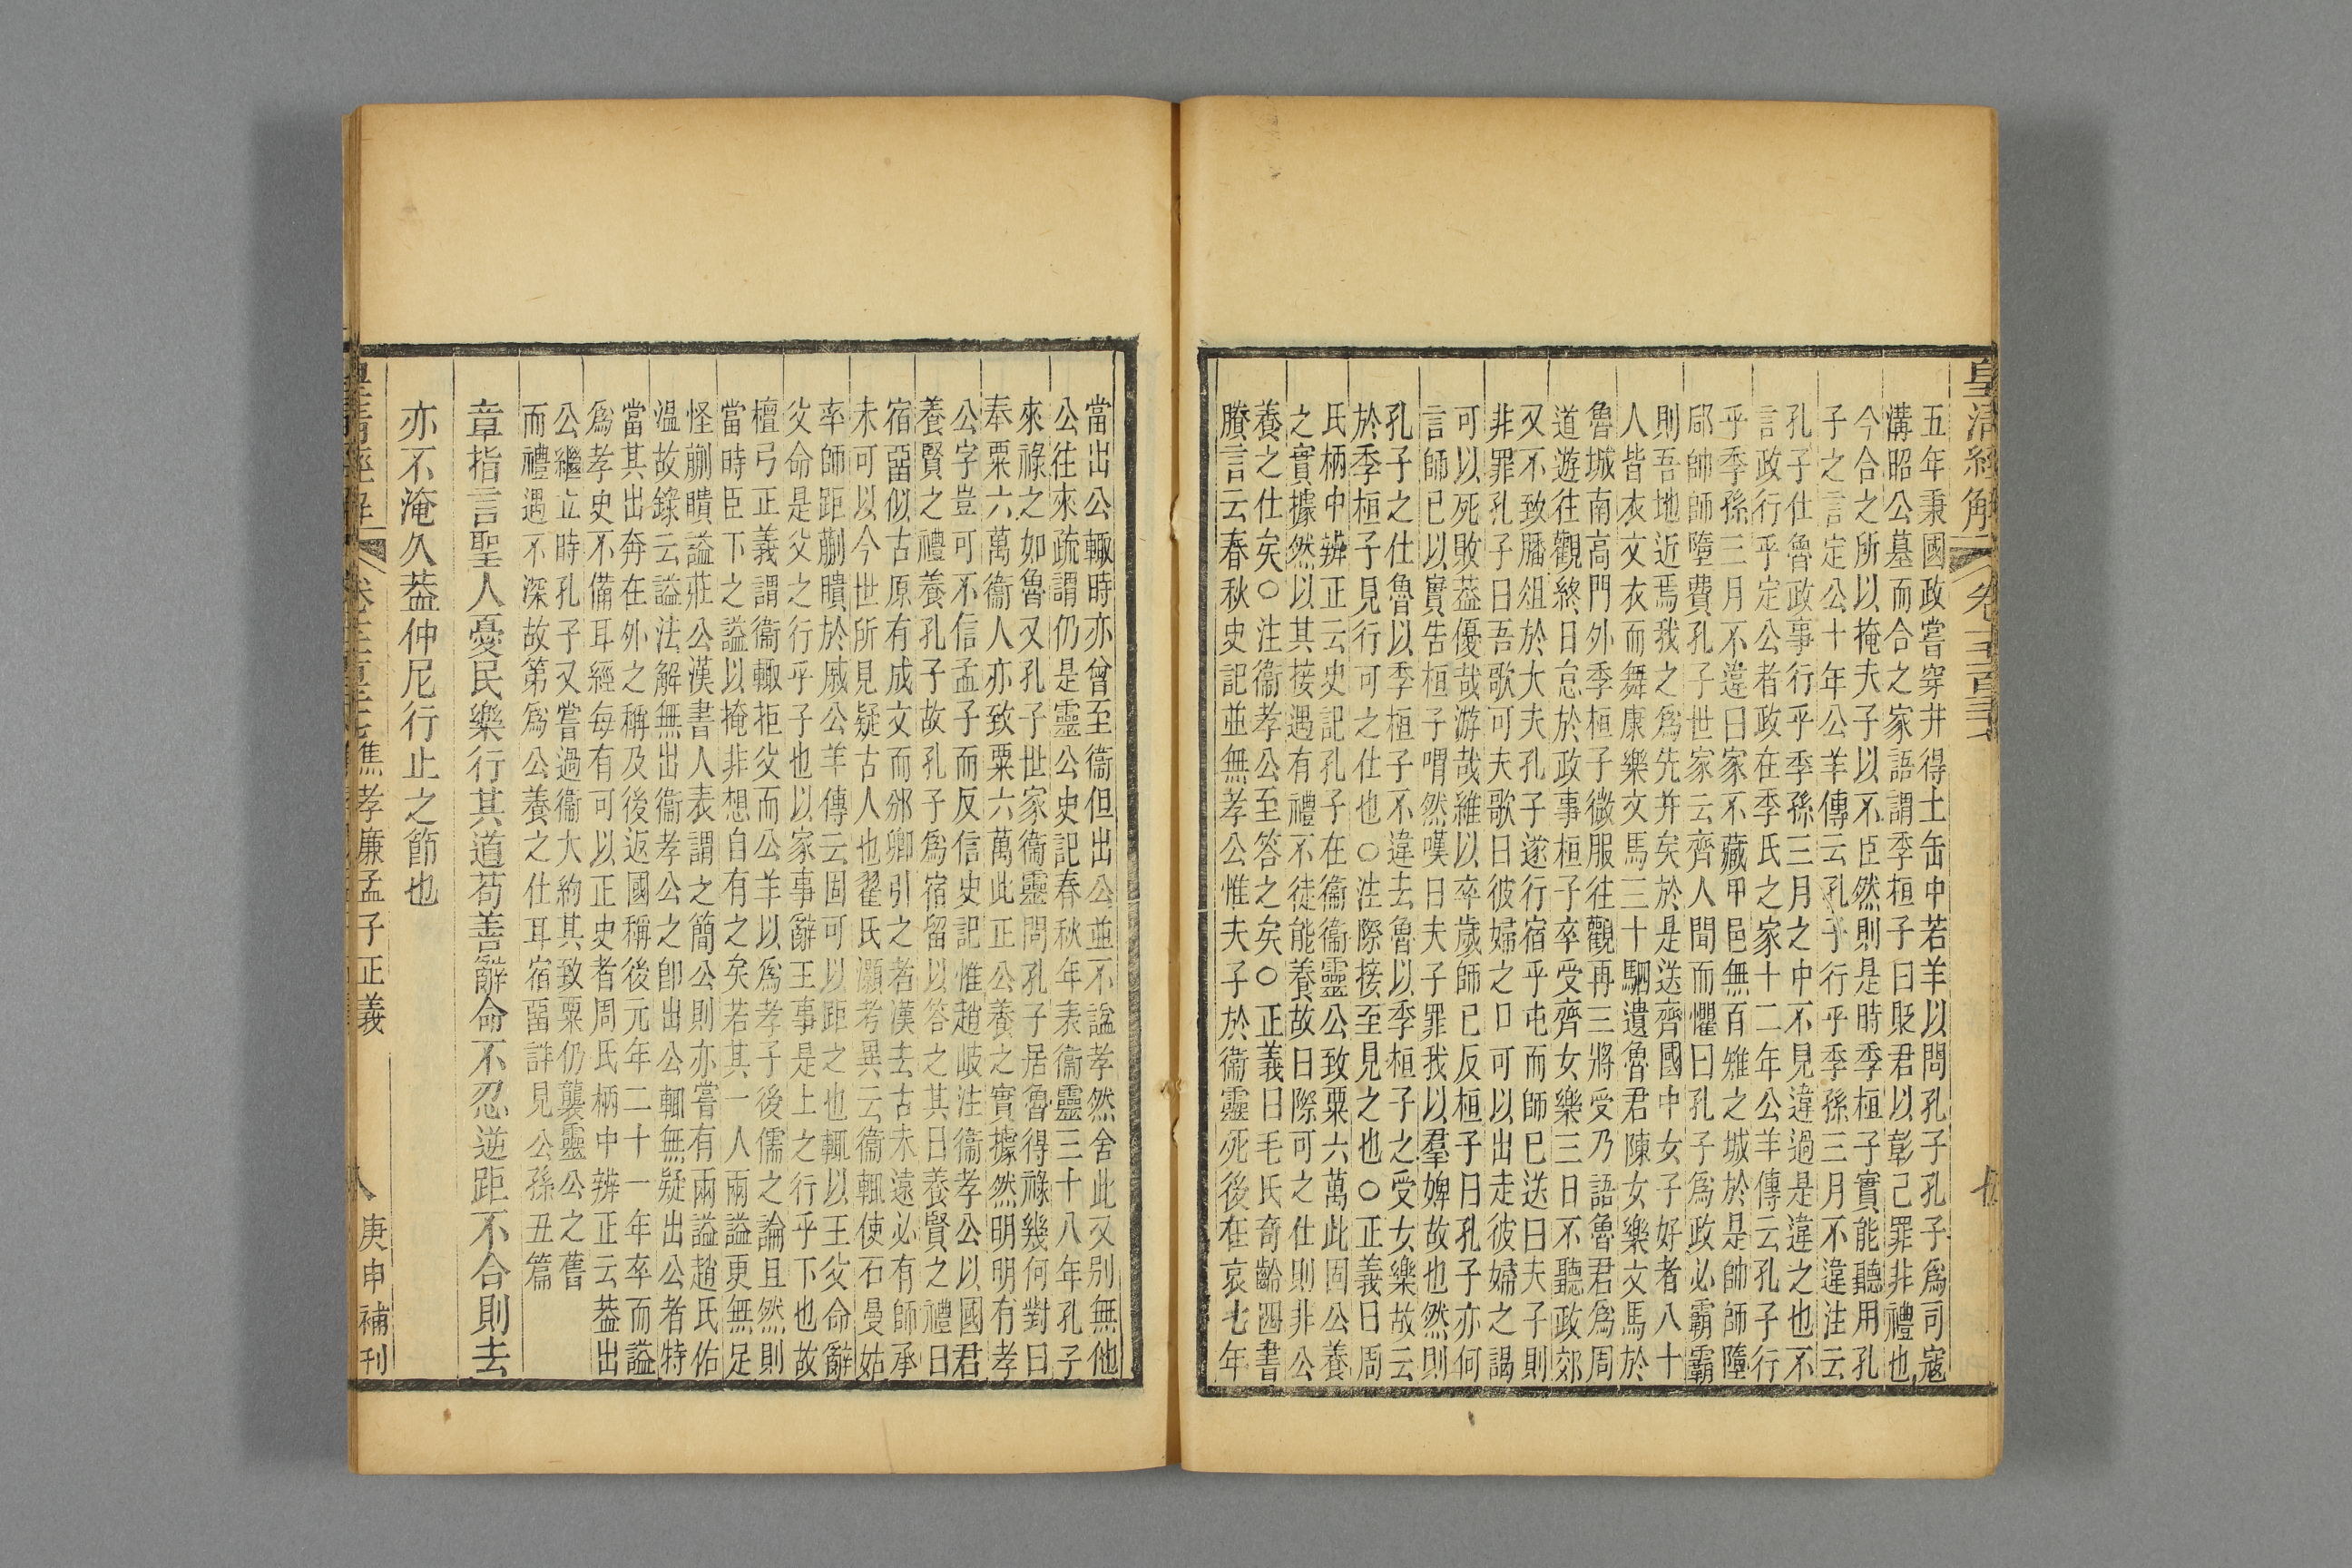 皇清經解
五年秉國政嘗穿井得土缶中若羊以問孔子孔子爲司寇
溝昭公墓而合之家語謂季桓子曰貶君以彰己罪非禮也
今合之所以掩夫子以不臣然則是時季桓子實能聽用孔
子之言定公十年公羊傳云孔子行乎季孫三月不違注云
孔子仕魯政事行乎季孫三月之中不見違過是違之也不
言政行乎定公者政在季氏之家十二年公羊傳云孔子行
乎季孫三月不違曰家不藏甲邑無百雉之城於是帥師隳
郈帥師隳費孔子世家云齊人聞而懼曰孔子爲政必霸霸
則吾地近焉我之爲先并矣於是送齊國中女子好者八十
人皆衣文衣而舞康樂文馬三十駟遺魯君陳女樂文馬於
魯城南高門外季桓子微服往觀再三將受乃語魯君爲周
道遊往觀終日怠於政事桓子卒受齊女樂三日不聽政郊
又不致膰俎於大夫孔子遂行宿乎屯而師已送曰夫子則
非罪孔子曰吾歌可夫歌曰彼婦之口可以出走彼婦之謁
可以死敗葢優哉游哉維以卒歲師已反桓子曰孔子亦何
言師已以實告桓子喟然嘆曰夫子罪我以羣婢故也然則
孔子之仕魯以季桓子不違去魯以季桓子之受女樂故云
於季桓子見行可之仕也○注際接至見之也○正義曰周
氏柄中辨正云史記孔子在衞衞靈公致粟六萬此固公養
之實據然以其接遇有禮不徒能養故曰際可之仕則非公
養之仕矣○注衞孝公至答之矣○正義曰毛氏奇齡四書
賸言云春秋史記並無孝公惟夫子於衞靈死後在哀七年
當出公輒時亦曾至衞但出公並不諡孝然舍此又別無他
公往來疏謂仍是靈公史記春秋年表衞靈三十八年孔子
來祿之如魯又孔子世家衞靈問孔子居魯得祿幾何對曰
奉粟六萬衞人亦致粟六萬此正公養之實據然明明有孝
公字豈可不信孟子而反信史記惟趙岐注衞孝公以國君
養賢之禮養孔子故孔子爲宿留以答之其曰養賢之禮曰
宿留似古原有成文而邠卿引之者漢去古未遠必有師承
未可以今世所見疑古人也翟氏灝考異云衞輒使石曼姑
率師距蒯聵於戚公羊傳云固可以距之也輒以王父命辭
父命是父之行乎子也以家事辭王事是上之行乎下也故
檀弓正義謂衞輒拒父而公羊以爲孝子後儒之論且然則
當時臣下之諡以掩非想自有之矣若其一人兩諡更無足
怪蒯聵諡莊公漢書人表謂之簡公則亦嘗有兩諡趙氏佑
溫故錄云諡法解無出衞孝公之卽出公輒無疑出公者特
當其出奔在外之稱及後返國稱後元年二十一年卒而諡
爲孝史不備耳經每有可以正史者周氏柄中辨正云葢出
公繼立時孔子又嘗過衞大約其致粟仍襲靈公之舊
而禮遇不深故第爲公養之仕耳宿留詳見公孫丑篇
章指言聖人憂民樂行其道苟善辭命不忍逆距不合則去
亦不淹久葢仲尼行止之節也
焦孝廉孟子正義
庚申補刊